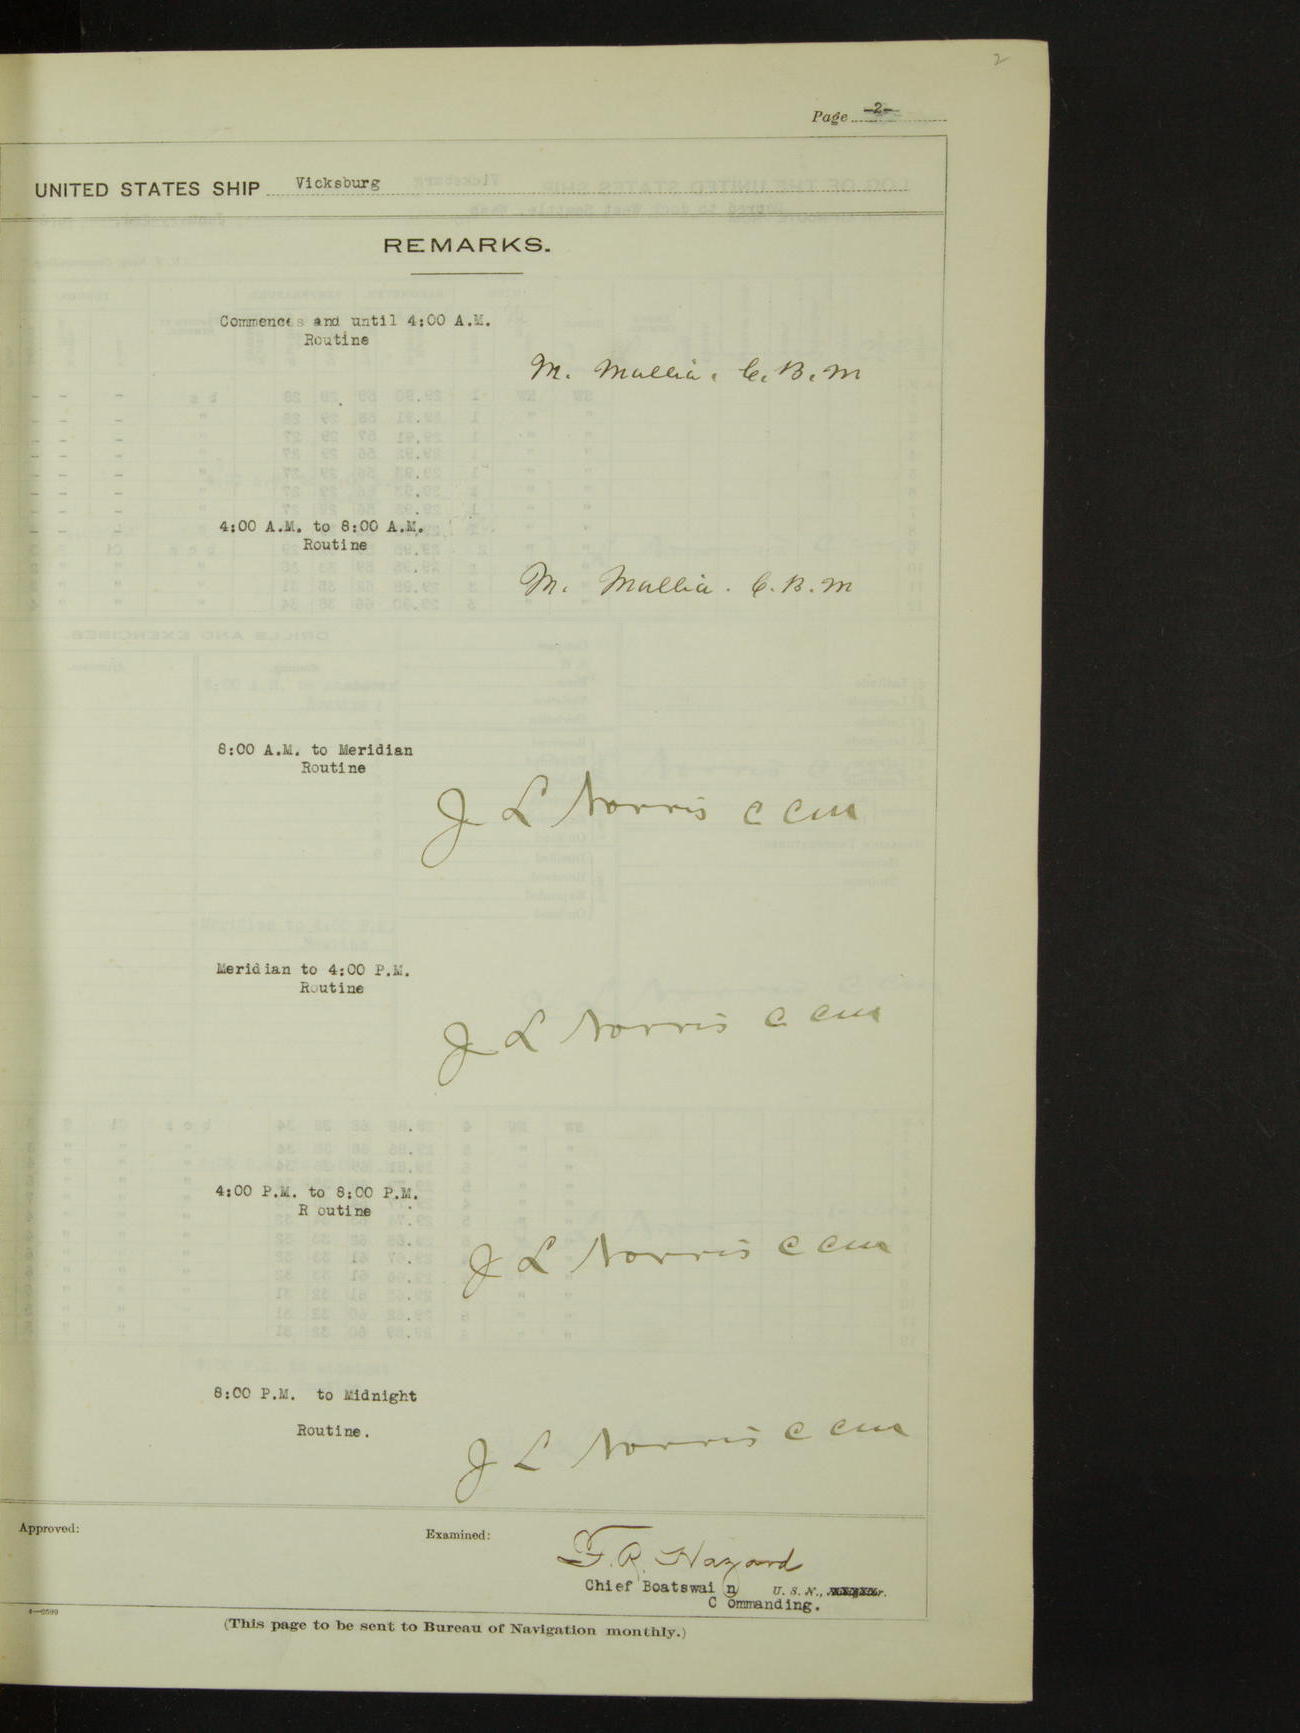 2
Page -2-
UNITED STATES SHIP Vicksburg
REMARKS.
Commences and until 4:00 A.M.
Routine
M. Mullia. C.B.M
4:00 A.M. to 8:00 A.M.
Routine
M. Mullia. C.B.M
8:00 A.M. to Meridian
Routine
J L Norris C CM
Meridian to 4:00 P.M.
Routine
J L Norris C CM
4:00 P.M. to 8:00 P.M.
R outine
J L Norris C CM
8:00 P.M. to Midnight
Routine.
J L Norris C CM
Approved:
Examined:
F. R. Hazard
Chief Boatswai n U. S. N.,
C ommanding.
(This page to be sent to Bureau of Navigation monthly.)